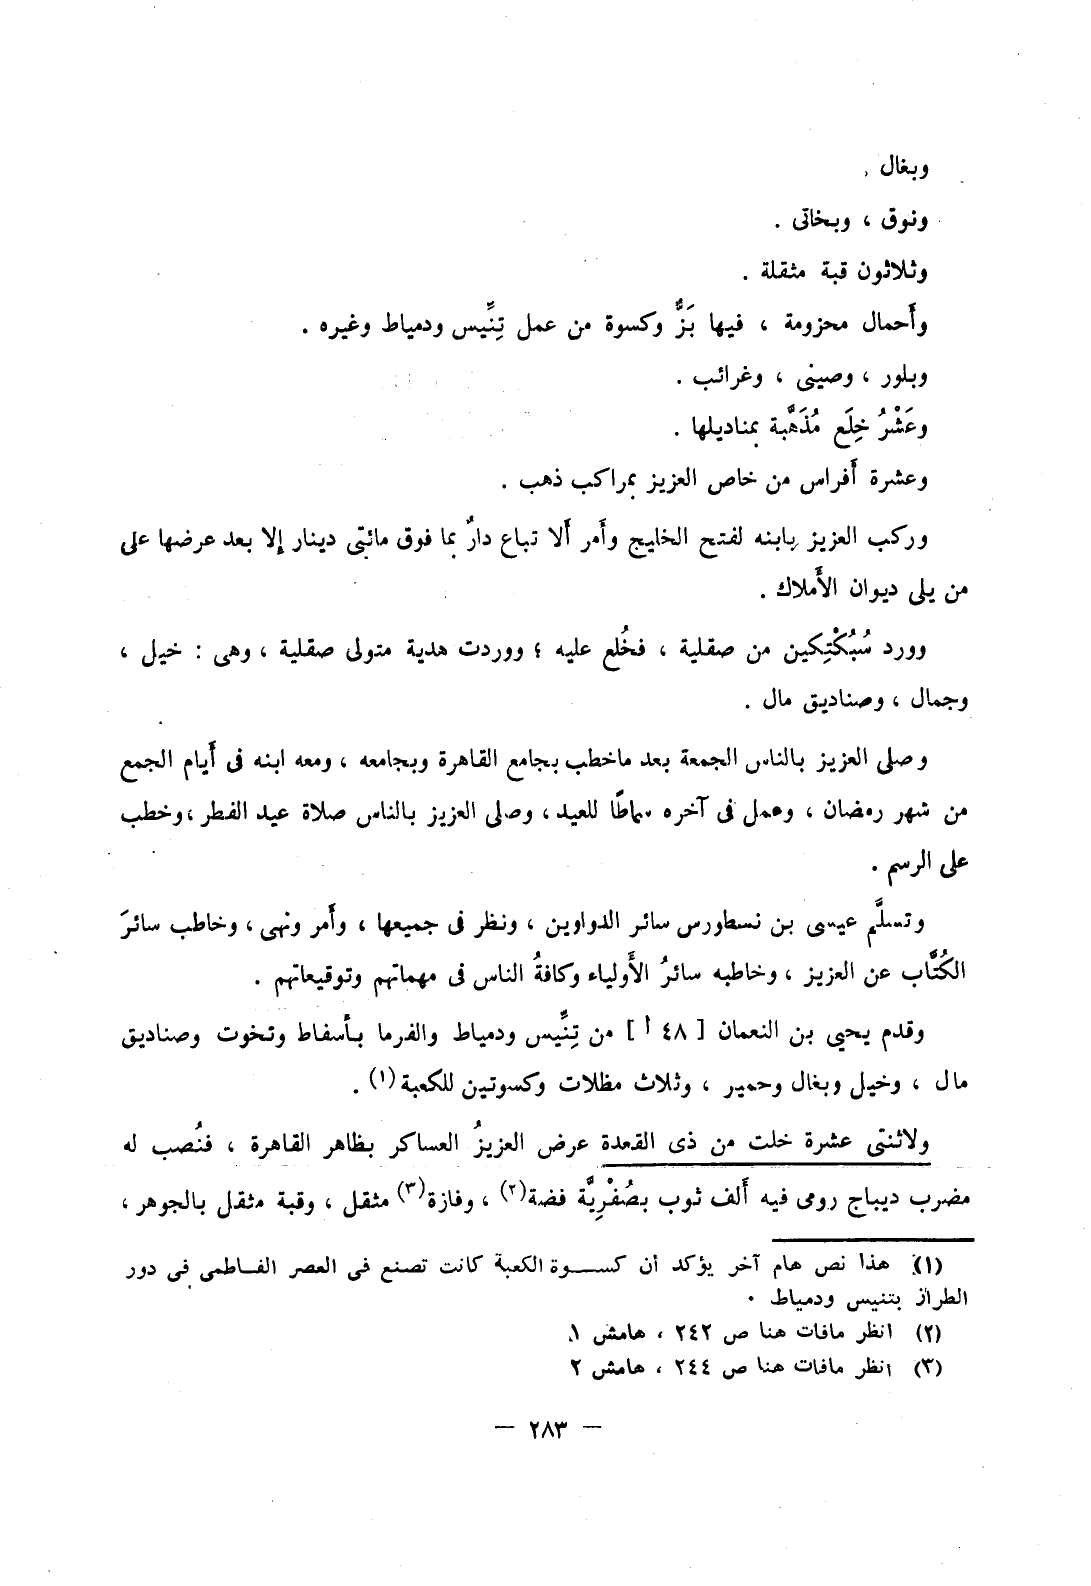 وبغال .
ونوق ، وبخاتى .
وثلاثون قبة مثقلة .
وأَحمال محزومة ، فيها بَزٌّ وكسوة من عمل تِنِّيس ودمياط وغيره .
وبلور ، وصينى ، وغرائب .
وعَشْرُ خِلَع مُذَهَّبة بمناديلها .
وعشرة أَفراس من خاص العزيز بمراكب ذهب .
وركب العزيز بابنه لفتح الخليج وأَمر أَلا تباع دارٌ بما فوق مائتى دينار إلا بعد عرضها على
من يلى ديوان الأَملاك .
وورد سُبُكْتِكين من صقلية ، فخُلع عليه ؛ ووردت هدية متولى صقلية ، وهى : خيل ،
وجمال ، وصناديق مال .
وصلى العزيز بالناس الجمعة بعد ماخطب بجامع القاهرة وبجامعه ، ومعه ابنه فى أَيام الجمع
من شهر رمضان ، وعمل فى آخره سماطًا للعيد ، وصلى العزيز بالناس صلاة عيد الفطر ، وخطب
على الرسم .
وتسلَّم عيسى بن نسطورس سائر الدواوين ، ونظر فى جميعها ، وأَمر ونهى ، وخاطب سائرَ
الكُتَّاب عن العزيز ، وخاطبه سائرُ الأَولياء وكافةُ الناس فى مهماتهم وتوقيعاتهم .
وقدم يحيى بن النعمان [ ٤٨ أ ] من تِنِّيس ودمياط والفرما بأسفاط وتخوت وصناديق
مال ، وخيل وبغال وحمير ، وثلاث مظلات وكسوتين للكعبة (١) .
ولاثنتى عشرة خلت من ذى القعدة عرض العزيزُ العساكر بظاهر القاهرة ، فنُصب له
مضرب ديباج رومى فيه أَلف ثوب بصُفْرِيَّة فضة (٢) ، وفازة (٣) مثقل ، وقبة مثقل بالجوهر ،
(١) هذا نص هام آخر يؤكد أن كســـوة الكعبة كانت تصنع فى العصر الفـاطمى فى دور
الطراز بتنيس ودمياط .
(٢) انظر مافات هنا ص ٢٤٢ ، هامش ١
(٣) انظر مافات هنا ص ٢٤٤ ، هامش ٢
— ٢٨٣ —